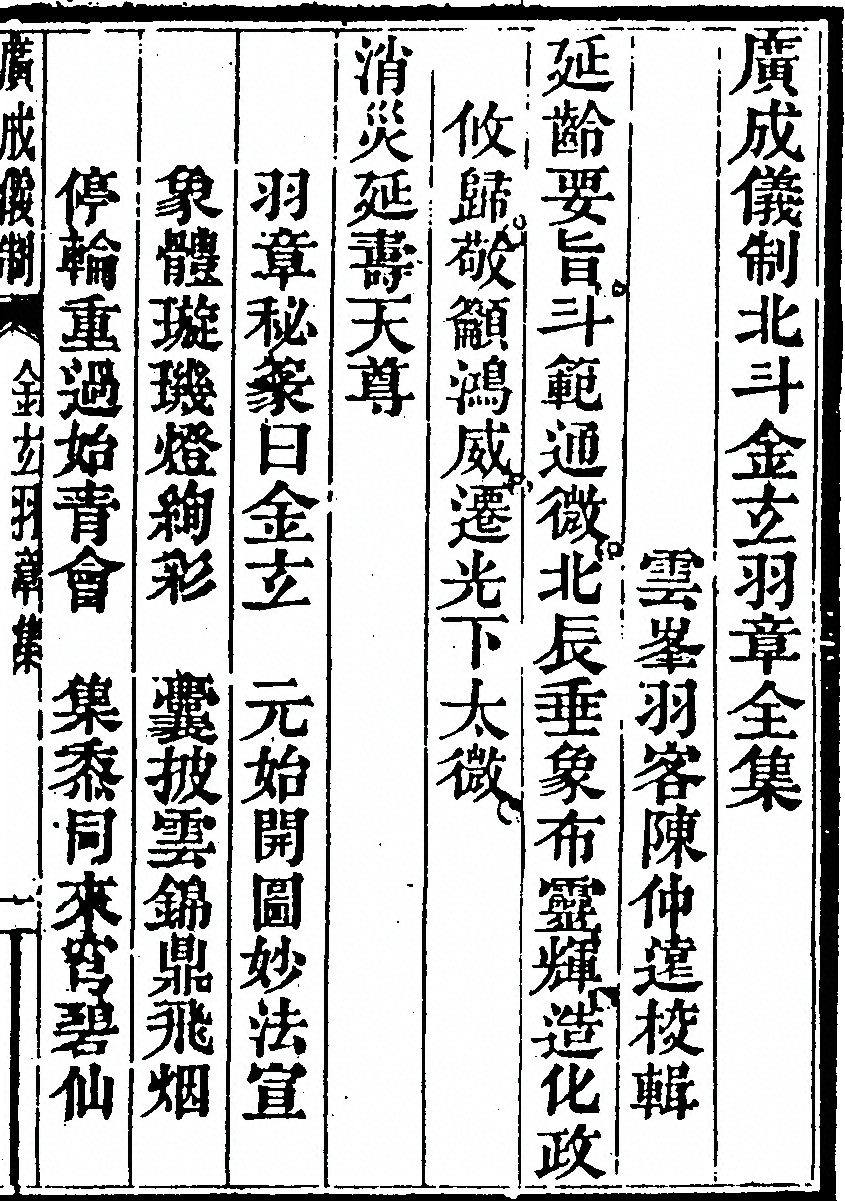 廣成儀制北斗金玄羽章全集
雲峯羽客陳仲遠校輯
延齡要旨斗範通微北辰垂象布靈輝造化政
攸歸敬籲鴻威遷光下太微
消災延壽天尊
羽章秘篆曰金玄　元始開圖妙法宣
象體璇璣燈絢彩　囊披雲錦鼎飛烟
停輪重過始青會　集黍同來穹碧仙
廣成儀制　金玄羽章集　一